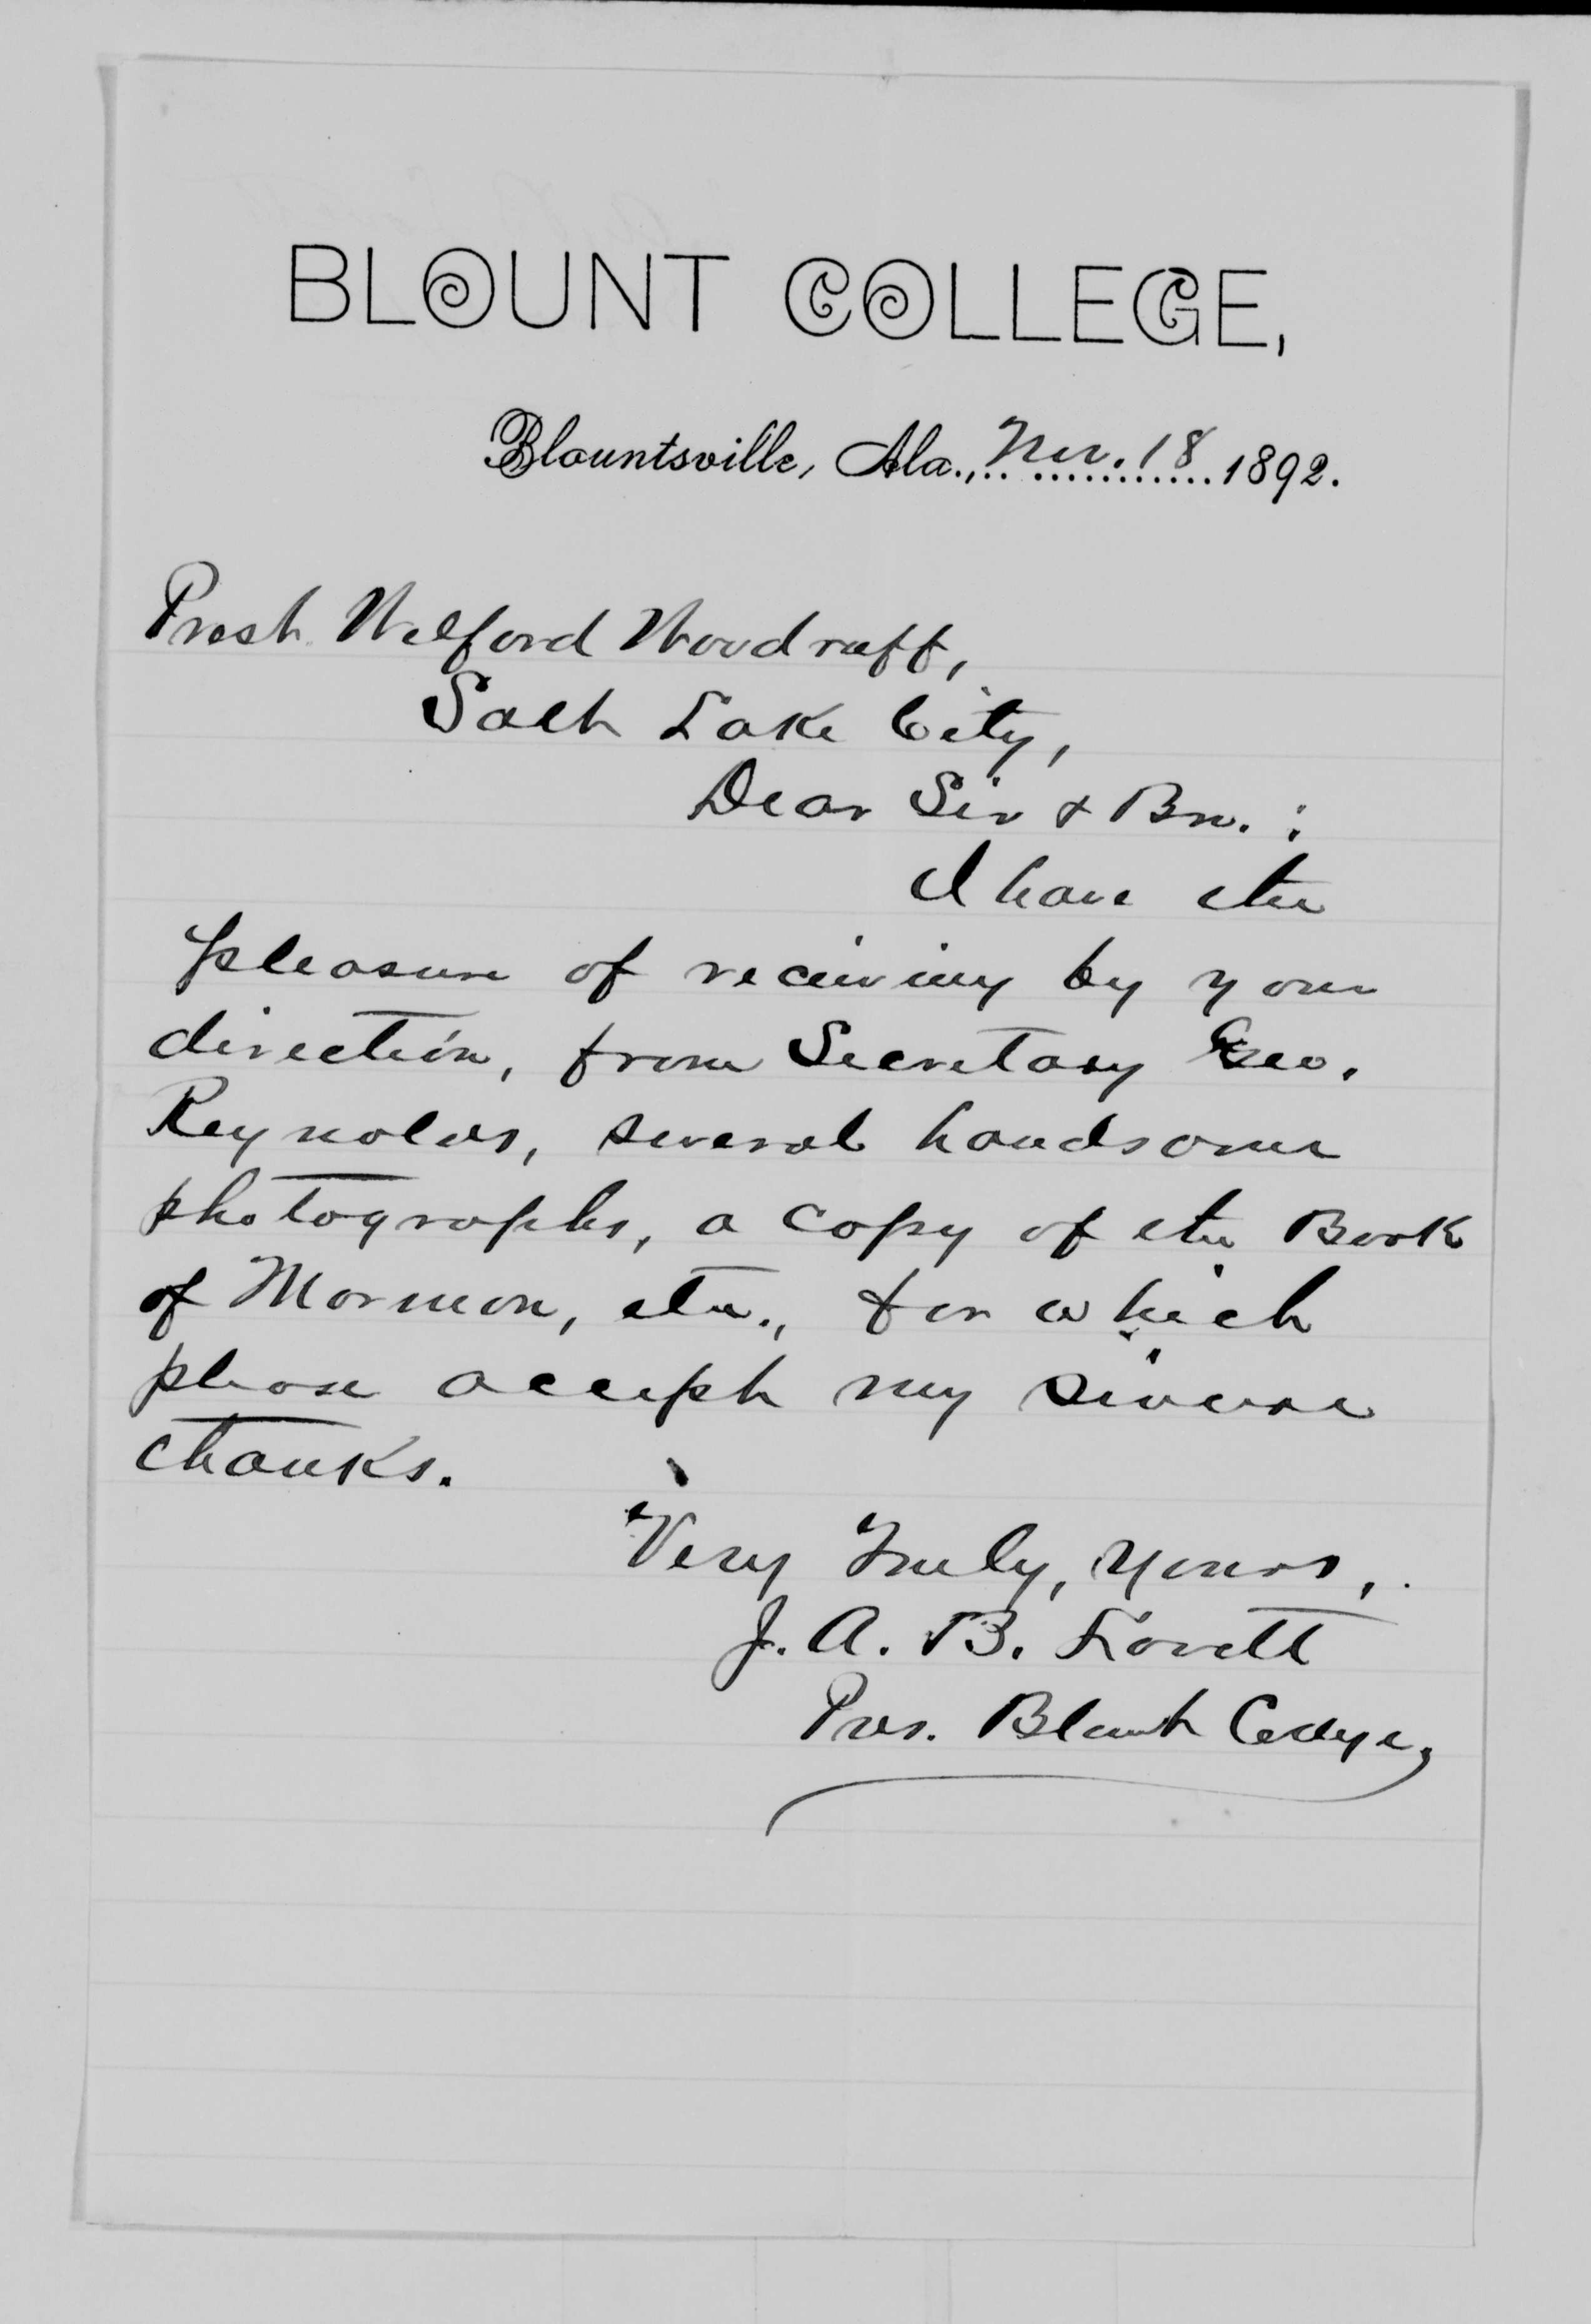 BLOUNT COLLEGE,
Blountsville, Ala., Nov. 18 1892.
Prest. Wilford Woodruff,
Salt Lake City,
Dear Sir & Bro. :
I have the
pleasure of receiving by your
direction, from Secretary Geo.
Reynolds, several handsome
photographs, a copy of the Book
of Mormon, etc., for which
please accept my sincere
thanks.
Very Truly, Yours,
J. A. B. Lovett
Pres. Blount College,